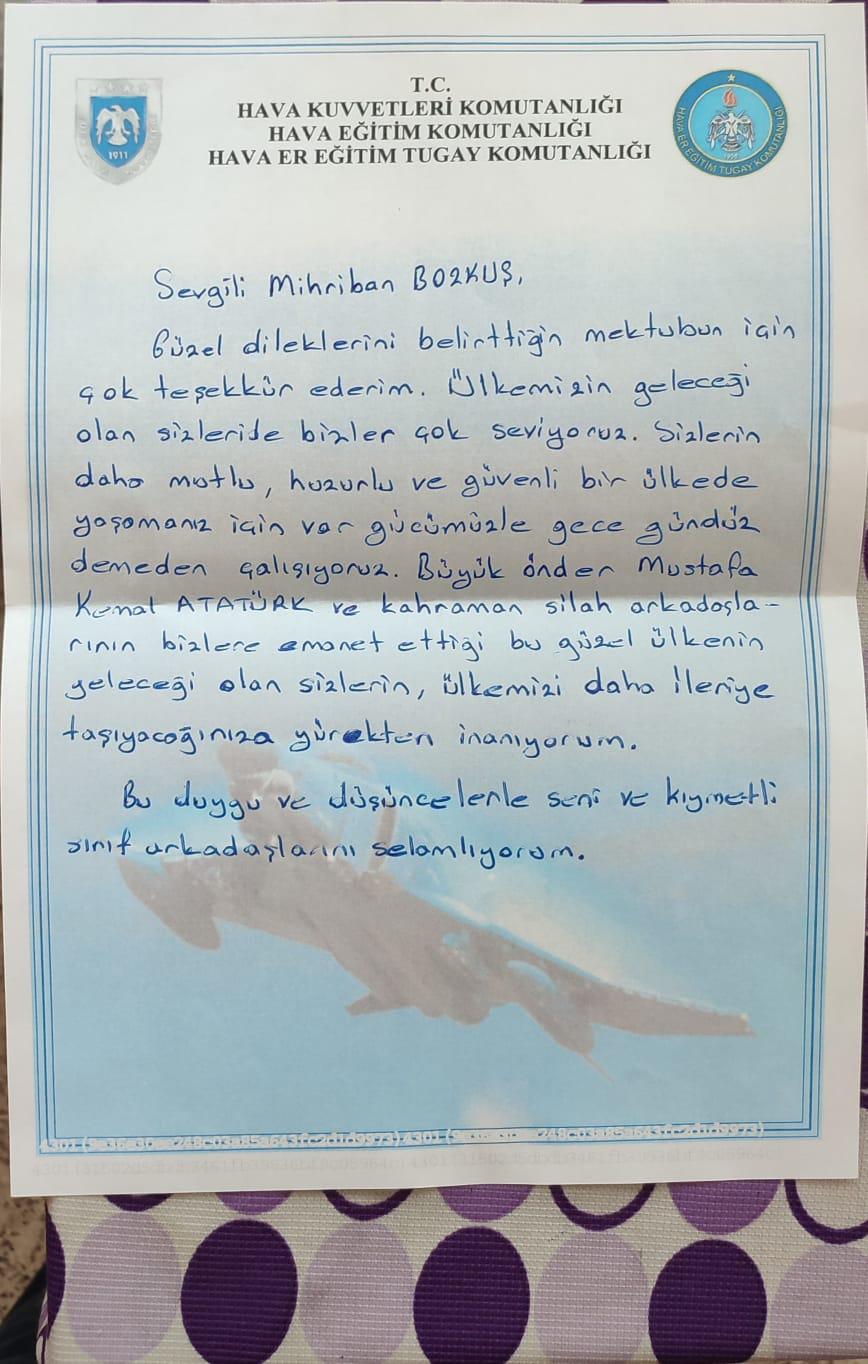 T.C.
HAVA KUVVETLERİ KOMUTANLIĞI
HAVA EĞİTİM KOMUTANLIĞI
HAVA ER EĞİTİM TUGAY KOMUTANLIĞI
1911
HAVA ER EĞİTİM TUGAY KOMUTANLIĞI
Sevgili Mihriban BOZKUŞ,
Güzel dileklerini belirttiğin mektubun için
çok teşekkür ederim. Ülkemizin geleceği
olan sizleride bizler çok seviyoruz. Sizlerin
daha mutlu, huzurlu ve güvenli bir ülkede
yaşamanız için var gücümüzle gece gündüz
demeden çalışıyoruz. Büyük önder Mustafa
Kemal ATATÜRK ve kahraman silah arkadaşla-
rının bizlere emanet ettiği bu güzel ülkenin
geleceği olan sizlerin, ülkemizi daha ileriye
taşıyacağınıza yürekten inanıyorum.
Bu duygu ve düşüncelerle seni ve kıymetli
sınıf arkadaşlarını selamlıyorum.